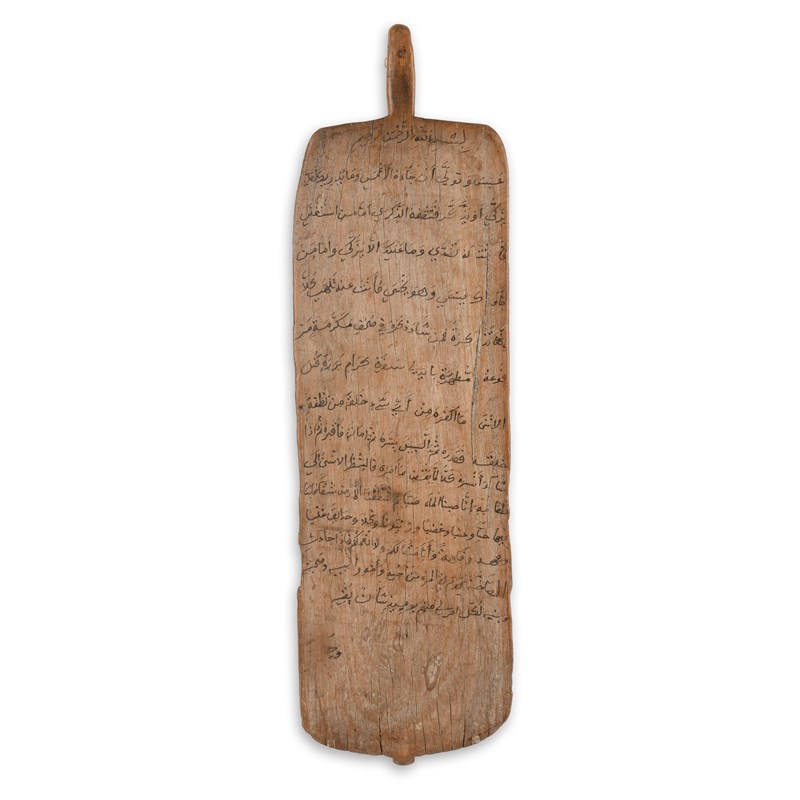 بسم الله الرحمن الرحيم
عبس وتولى أن جاءه الأعمى وما يدريك لعله
يزكى أو يذكر فتنفعه الذكرى أما من استغنى
فأنت له تصدى وما عليك ألا يزكى وأما من
جاءك يسعى وهو يخشى فأنت عنه تلهى كلا
إنها تذكرة فمن شاء ذكره في صحف مكرمة مر
فوعة مطهرة بأيدي سفرة كرام بررة قتل
الانسن ما أكفره من أي شيء خلقه من نطفة
خلقه فقدره ثم السبيل يسره ثم أماته فأقبره ثم إذا
شاء أنشره كلا لما يقض ما أمره فلينظر الانسن إلى
طعامه أنا صببنا الماء صبا ثم شققنا الأرض شقا فأنبتنا
فيها حبا وعنبا وقضبا وزيتونا ونخلا وحدائق غلبا
وفكهة وأبا متاعا لكم ولأنعمكم فإذا جاءت
المرء من أخيه وأمه وأبيه وصحبته
وبنيه لكل امرئ منهم يومئذ شأن يغنيه